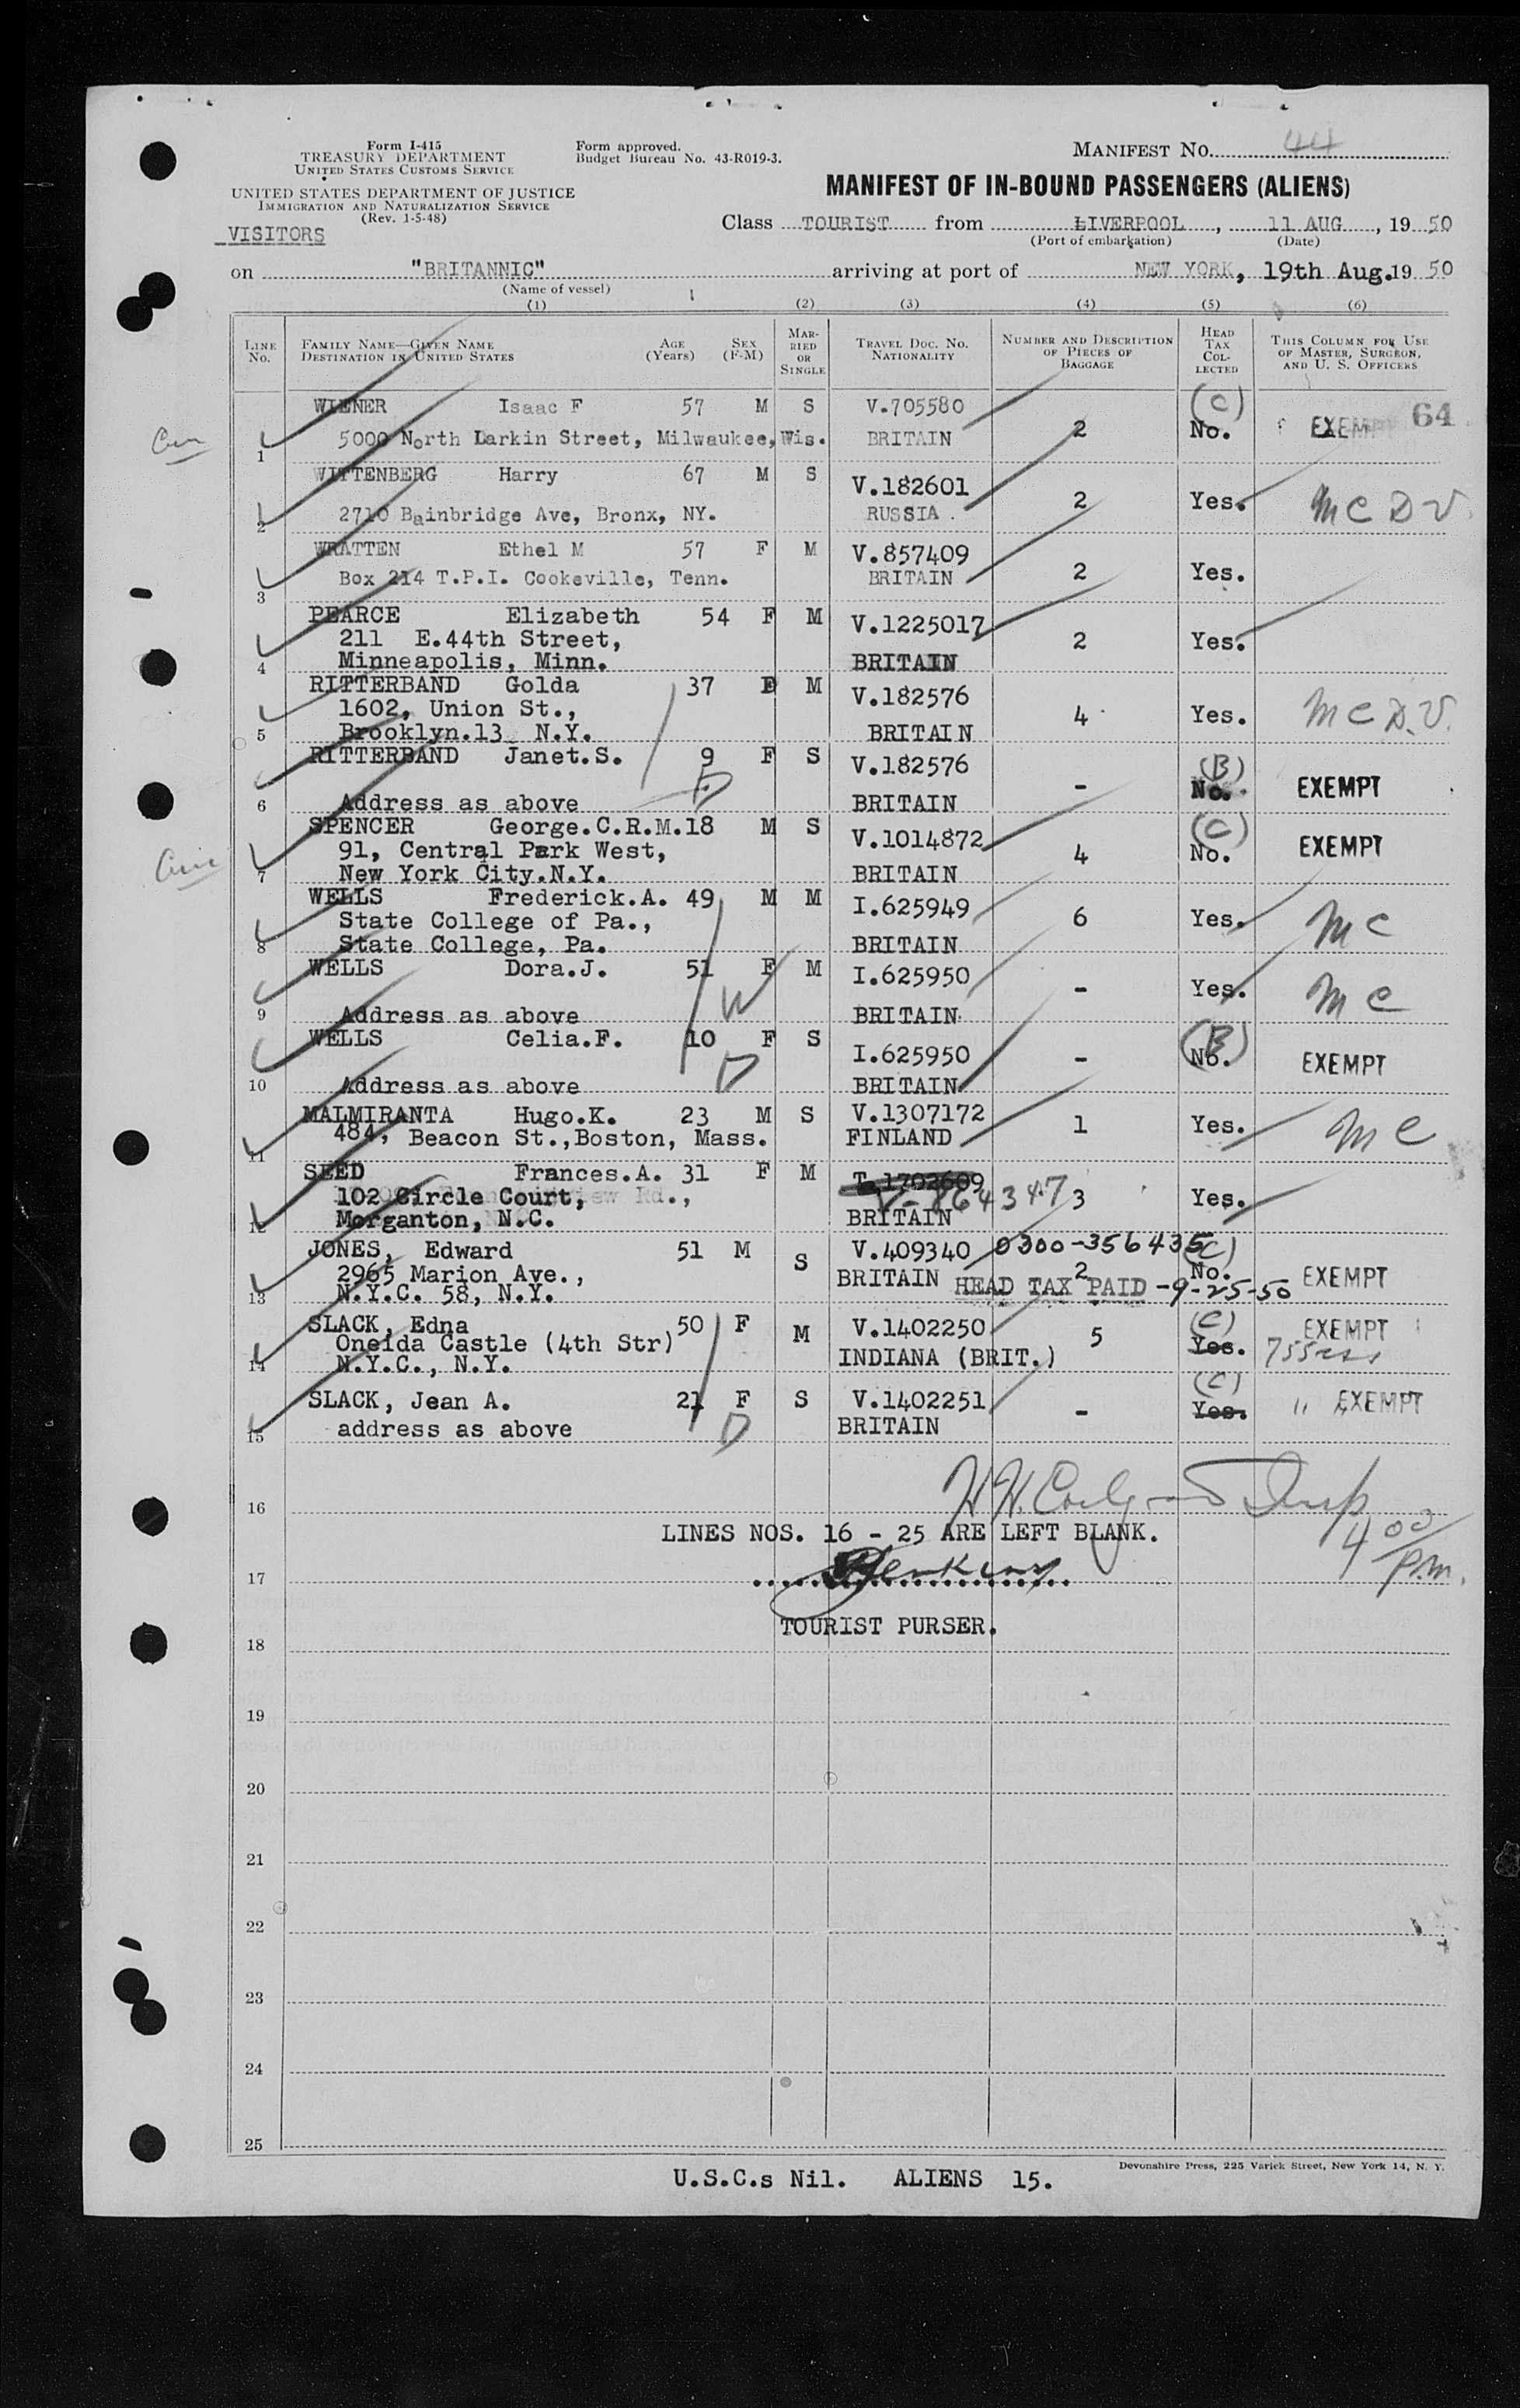 Form I-415
TREASURY DEPARTMENT
UNITED STATES CUSTOMS SERVICE
UNITED STATES DEPARTMENT OF JUSTICE
IMMIGRATION AND NATURALIZATION SERVICE
(Rev. 1-5-48)
VISITORS
Form approved.
Budget Bureau No. 43-R019-3.
MANIFEST NO. 44
MANIFEST OF IN-BOUND PASSENGERS (ALIENS)
Class TOURIST from LIVERPOOL, 11 AUG, 19 50
(Port of embarkation) (Date)
on "BRITANNIC" arriving at port of NEW YORK, 19th Aug. 19 50
(Name of vessel)
(1) (2) (3) (4) (5) (6)
LINE No. FAMILY NAME—GIVEN NAME DESTINATION IN UNITED STATES AGE (Years) SEX (F-M) MARRIED OR SINGLE TRAVEL DOC. NO. NATIONALITY NUMBER AND DESCRIPTION OF PIECES OF BAGGAGE HEAD TAX COLLECTED THIS COLUMN FOR USE OF MASTER, SURGEON, AND U. S. OFFICERS
WIENER Isaac F 57 M S V.705580 (C) 64
1 5000 North Larkin Street, Milwaukee, Wis. BRITAIN 2 No. EXEMPT
WITTENBERG Harry 67 M S V.182601
2 2710 Bainbridge Ave, Bronx, NY. RUSSIA. 2 Yes. MCDV
WRATTEN Ethel M 57 F M V.857409
3 Box 214 T.P.I. Cookeville, Tenn. BRITAIN 2 Yes.
PEARCE Elizabeth 54 F M V.1225017
211 E.44th Street, 2 Yes.
4 Minneapolis, Minn. BRITAIN
RITTERBAND Golda 37 F M V.182576
1602, Union St., 4 Yes. MCD.V.
5 Brooklyn.13 N.Y. BRITAIN
RITTERBAND Janet.S. 9 F S V.182576 (B)
- No. EXEMPT
6 Address as above BRITAIN
SPENCER George.C.R.M. 18 M S V.1014872 (C)
91, Central Park West, 4 No. EXEMPT
7 New York City.N.Y. BRITAIN
WELLS Frederick.A. 49 M M I.625949
State College of Pa., 6 Yes. MC
8 State College, Pa. BRITAIN
WELLS Dora.J. 51 F M I.625950
- Yes. MC
9 Address as above BRITAIN
WELLS Celia.F. 10 F S I.625950 (B)
- No. EXEMPT
10 Address as above BRITAIN
MALMIRANTA Hugo.K. 23 M S V.1307172
11 484, Beacon St., Boston, Mass. FINLAND 1 Yes. MC
SEED Frances.A. 31 F M T.1702609
102 Circle Court, V-864347 3 Yes.
12 Morganton, N.C. BRITAIN
JONES, Edward 51 M S V.409340 0300-356435 (C)
2965 Marion Ave., BRITAIN 2 No. EXEMPT
13 N.Y.C. 58, N.Y. HEAD TAX PAID -9-25-50
SLACK, Edna 50 F M V.1402250 5 (C) EXEMPT
Oneida Castle (4th Str) Yes.
14 N.Y.C., N.Y. INDIANA (BRIT.)
SLACK, Jean A. 21 F S V.1402251 - (C) Yes. " EXEMPT
15 address as above BRITAIN
16
LINES NOS. 16 - 25 ARE LEFT BLANK.
4 00 p.m.
17 Jenkins
TOURIST PURSER.
18
19
20
21
22
23
24
25
Devonshire Press, 225 Varick Street, New York 14, N. Y.
U.S.C.s Nil. ALIENS 15.